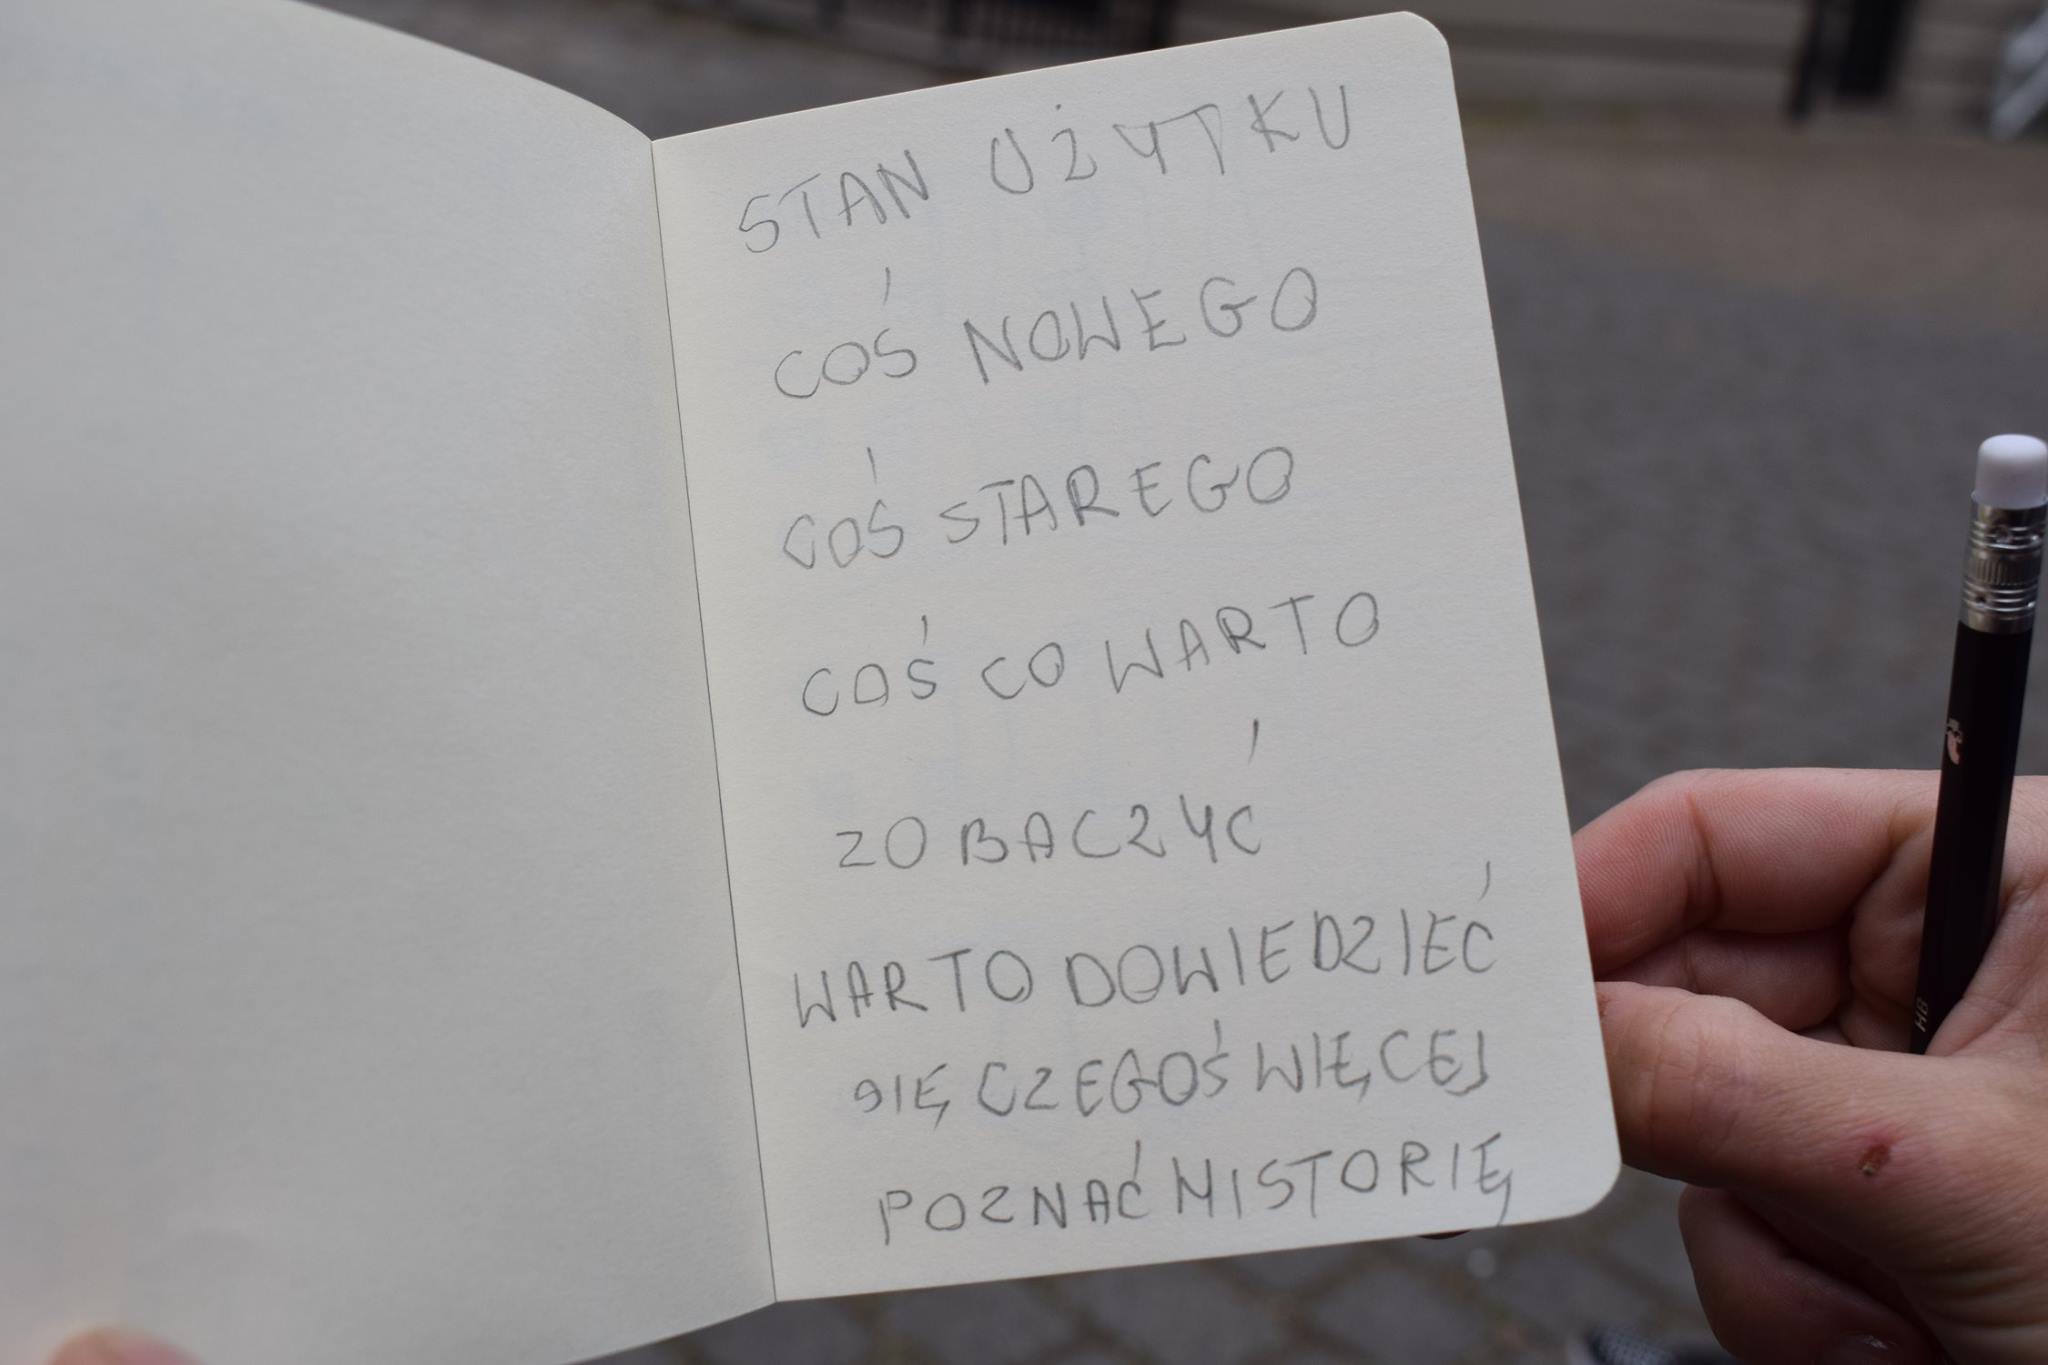 STAN UŻYTKU
COŚ NOWEGO
COŚ STAREGO
COŚ CO WARTO
ZOBACZYĆ
WARTO DOWIEDZIEĆ
SIĘ CZEGOŚ WIĘCEJ
POZNAĆ HISTORIĘ
HB